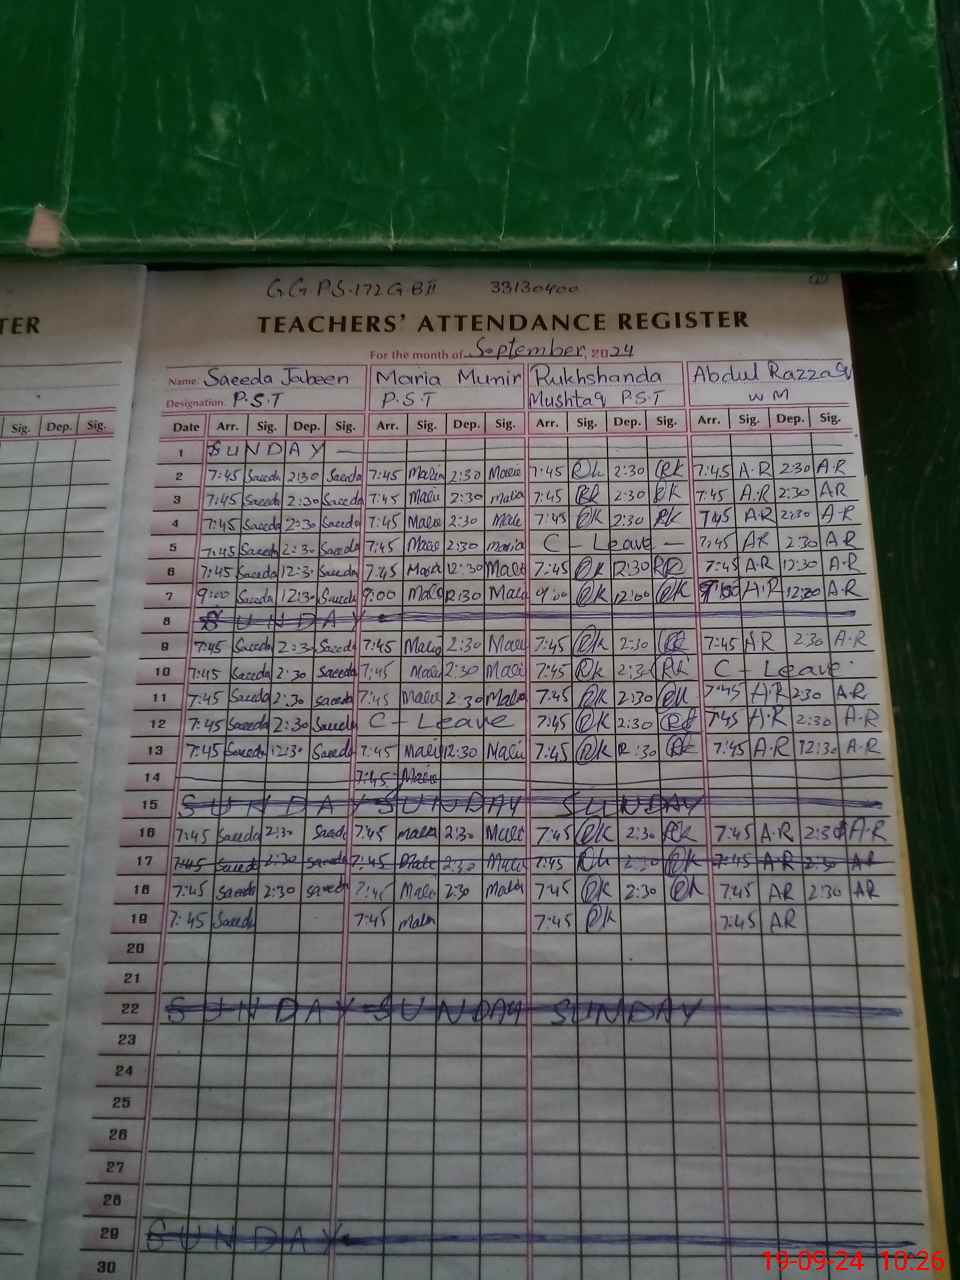 G G P S 172 G B II 33130400
TER
TEACHERS' ATTENDANCE REGISTER
For the month of September, 2024
Name: Saeeda Jabeen Maria Munir Rukhshanda Abdul Razzaq
Designation: P.S.T P.S.T Mushtaq P.S.T W M
Sig. Dep. Sig. Date Arr. Sig. Dep. Sig. Arr. Sig. Dep. Sig. Arr. Sig. Dep. Sig. Arr. Sig. Dep. Sig.
1 SUNDAY
2 7:45 Saeeda 2:30 Saeeda 7:45 Maria 2:30 Maria 7:45 2:30 RK 7:45 A.R 2:30 A.R
3 7:45 Saeeda 2:30 Saeeda 7:45 Maria 2:30 Maria 7:45 RK 2:30 RK 7:45 A.R 2:30 AR
4 7:45 Saeeda 2:30 Saeeda 7:45 Maria 2:30 Maria 7:45 RK 2:30 RK 7:45 A.R 2:30 A.R
5 7:45 Saeeda 2:30 Saeeda 7:45 Maria 2:30 Maria C - Leave - 7:45 AR 2:30 AR
6 7:45 Saeeda 12:30 Saeeda 7:45 Maria 12:30 Maria 7:45 RK 12:30 7:45 A.R 12:30 A.R
7 9:00 Saeeda 12:30 Saeeda 9:00 Maria 12:30 Maria 9:00 RK RK 9:00 A.R A.R
8 SUNDAY
9 7:45 Saeeda 2:30 Saeeda 7:45 Maria 2:30 Maria 7:45 RK 2:30 RK 7:45 A.R 2:30 A.R
10 7:45 Saeeda 2:30 Saeeda 7:45 Maria 2:30 Maria 7:45 RK 2:30 RK C - Leave
11 7:45 Saeeda 2:30 Saeeda 7:45 Maria 2:30 Maria 7:45 RK 2:30 RK 7:45 A.R 2:30 AR
12 7:45 Saeeda 2:30 Saeeda C - Leave 7:45 RK 2:30 RK 7:45 A.R 2:30 A.R
13 7:45 Saeeda 12:30 Saeeda 7:45 Maria 12:30 Maria 7:45 RK 12:30 RK 7:45 A.R 12:30 A.R
14 7:45 Maria
15 SUNDAY SUNDAY SUNDAY
16 7:45 Saeeda 2:30 Saeeda 7:45 Maria 2:30 Maria 7:45 RK 2:30 RK 7:45 A.R 2:30 A.R
17 7:45 Saeeda 2:30 Saeeda 7:45 Maria 2:30 Maria 7:45 RK 2:30 RK 7:45 AR 2:30 AR
18 7:45 Saeeda 2:30 Saeeda 7:45 Maria 2:30 Maria 7:45 RK 2:30 RK 7:45 AR 2:30 AR
19 7:45 Saeeda 7:45 Maria 7:45 RK 7:45 AR
20
21
22 SUNDAY SUNDAY SUNDAY
23
24
25
26
27
28
29 SUNDAY
30
19-09-24 10:26